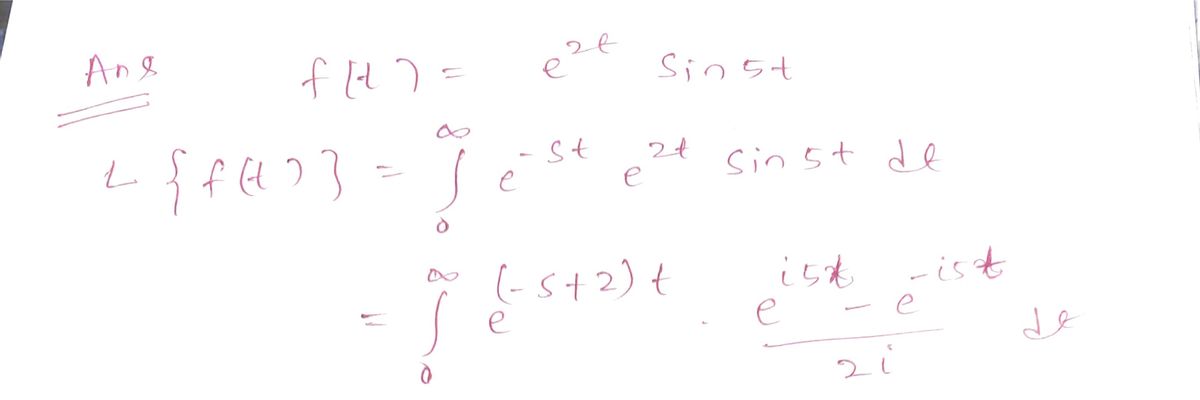 Ans f(t) = e^{2t} sin 5t
L {f(t)} = ∫_0^∞ e^{-st} e^{2t} sin 5t dt
= ∫_0^∞ e^{(-s+2)t} . \frac{e^{i5t} - e^{-i5t}}{2i} dt